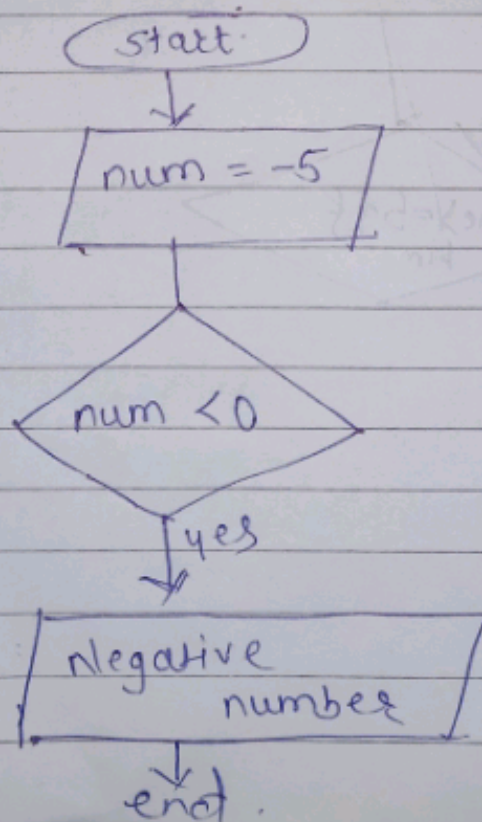 start.
num = -5
num < 0
yes
Negative
number
end.